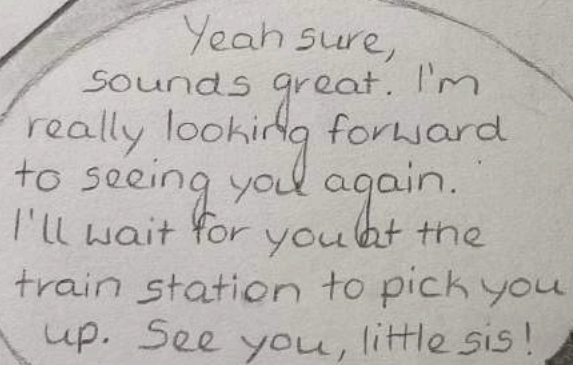 Yeah sure,
sounds great. I'm
really looking forward
to seeing you again.
I'll wait for you at the
train station to pick you
up. See you, little sis!